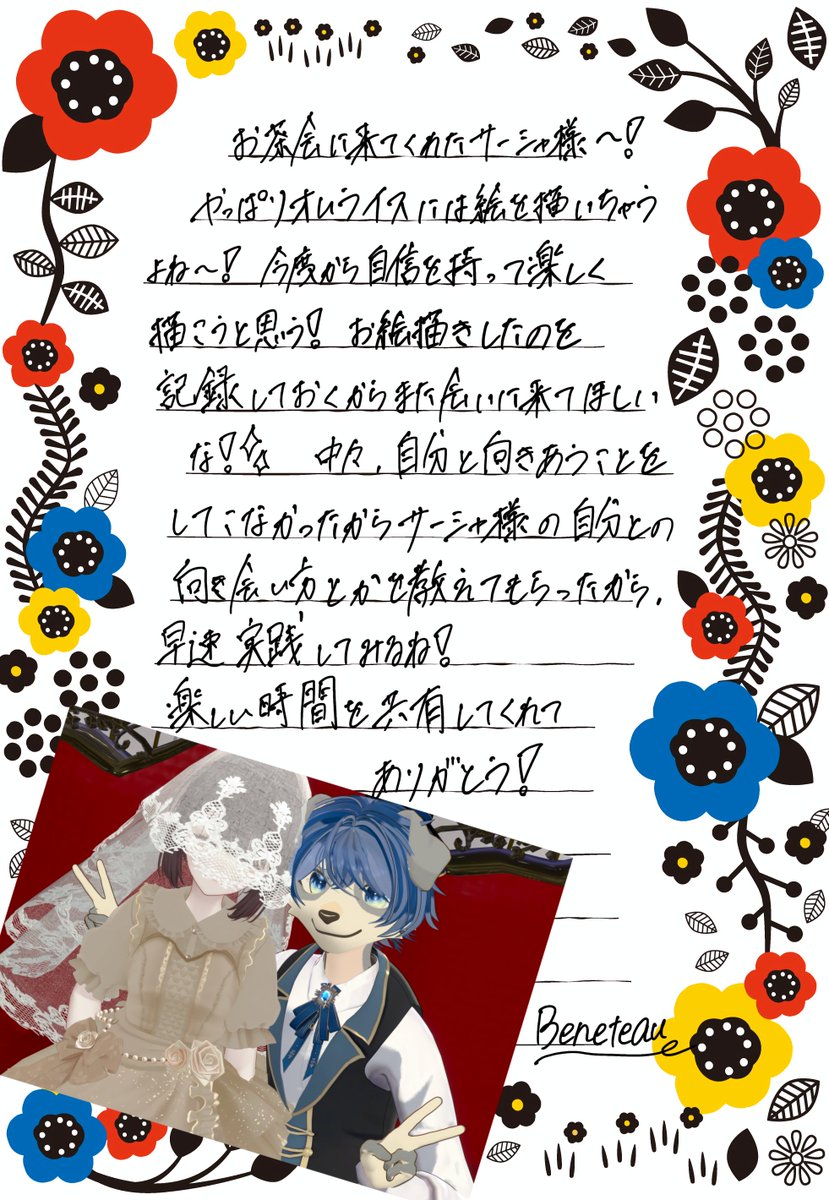 お茶会に来てくれたサーシャ様〜!
やっぱりオムライスには絵を描いちゃう
よね〜! 今度から自信を持って楽しく
描こうと思う! お絵描きしたのを
記録しておくからまた会いに来てほしい
な!✧ 中々、自分と向きあうことを
してこなかったからサーシャ様の自分との
向き会い方とかを教えてもらったから、
早速実践してみるね!
楽しい時間を共有してくれて
ありがとう!
Beneteau